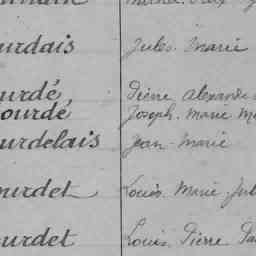 urdais Jules. Marie
ourdé Pierre Alexandre
ourdé Joseph. Marie
urdelais Jean-Marie
ourdet Louis. Marie Jul
ourdet Louis. Pierre.